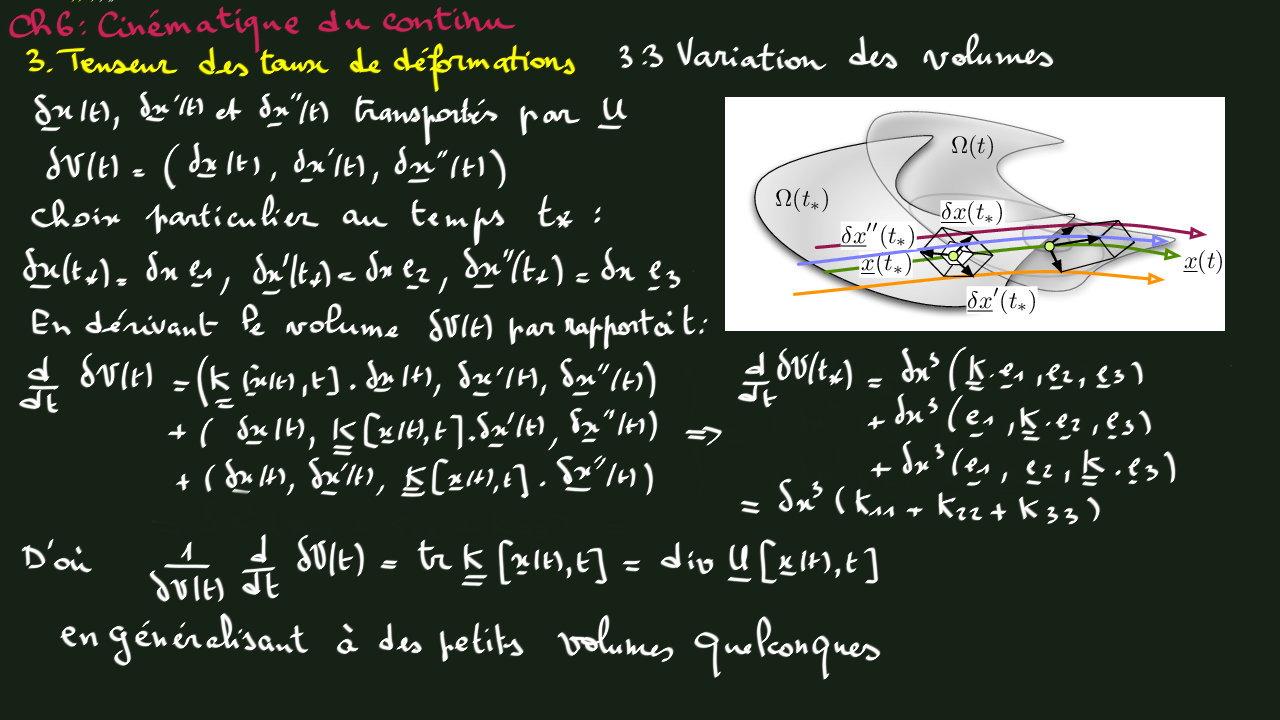 Ch6: Cinématique du continu
3. Tenseur des taux de déformations 3.3 Variation des volumes
δx(t), δx'(t) et δx''(t) transportés par U
δV(t) = (δx(t), δx'(t), δx''(t))
Choix particulier au temps t* :
δx(t*) = δx e1, δx'(t*) = δx e2, δx''(t*) = δx e3
En dérivant le volume δV(t) par rapport à t :
d/dt δV(t) = (K[x(t),t] . δx(t), δx'(t), δx''(t))
+ (δx(t), K[x(t),t] . δx'(t), δx''(t)) ⇒
+ (δx(t), δx'(t), K[x(t),t] . δx''(t))
Ω(t)
Ω(t*)
δx(t*)
δx''(t*)
x(t*)
x(t)
δx'(t*)
d/dt δV(t*) = δx³ (K . e1, e2, e3)
+ δx³ (e1, K . e2, e3)
+ δx³ (e1, e2, K . e3)
= δx³ (K11 + K22 + K33)
D'où 1/δV(t) d/dt δV(t) = tr K [x(t),t] = div U [x(t),t]
en généralisant à des petits volumes quelconques